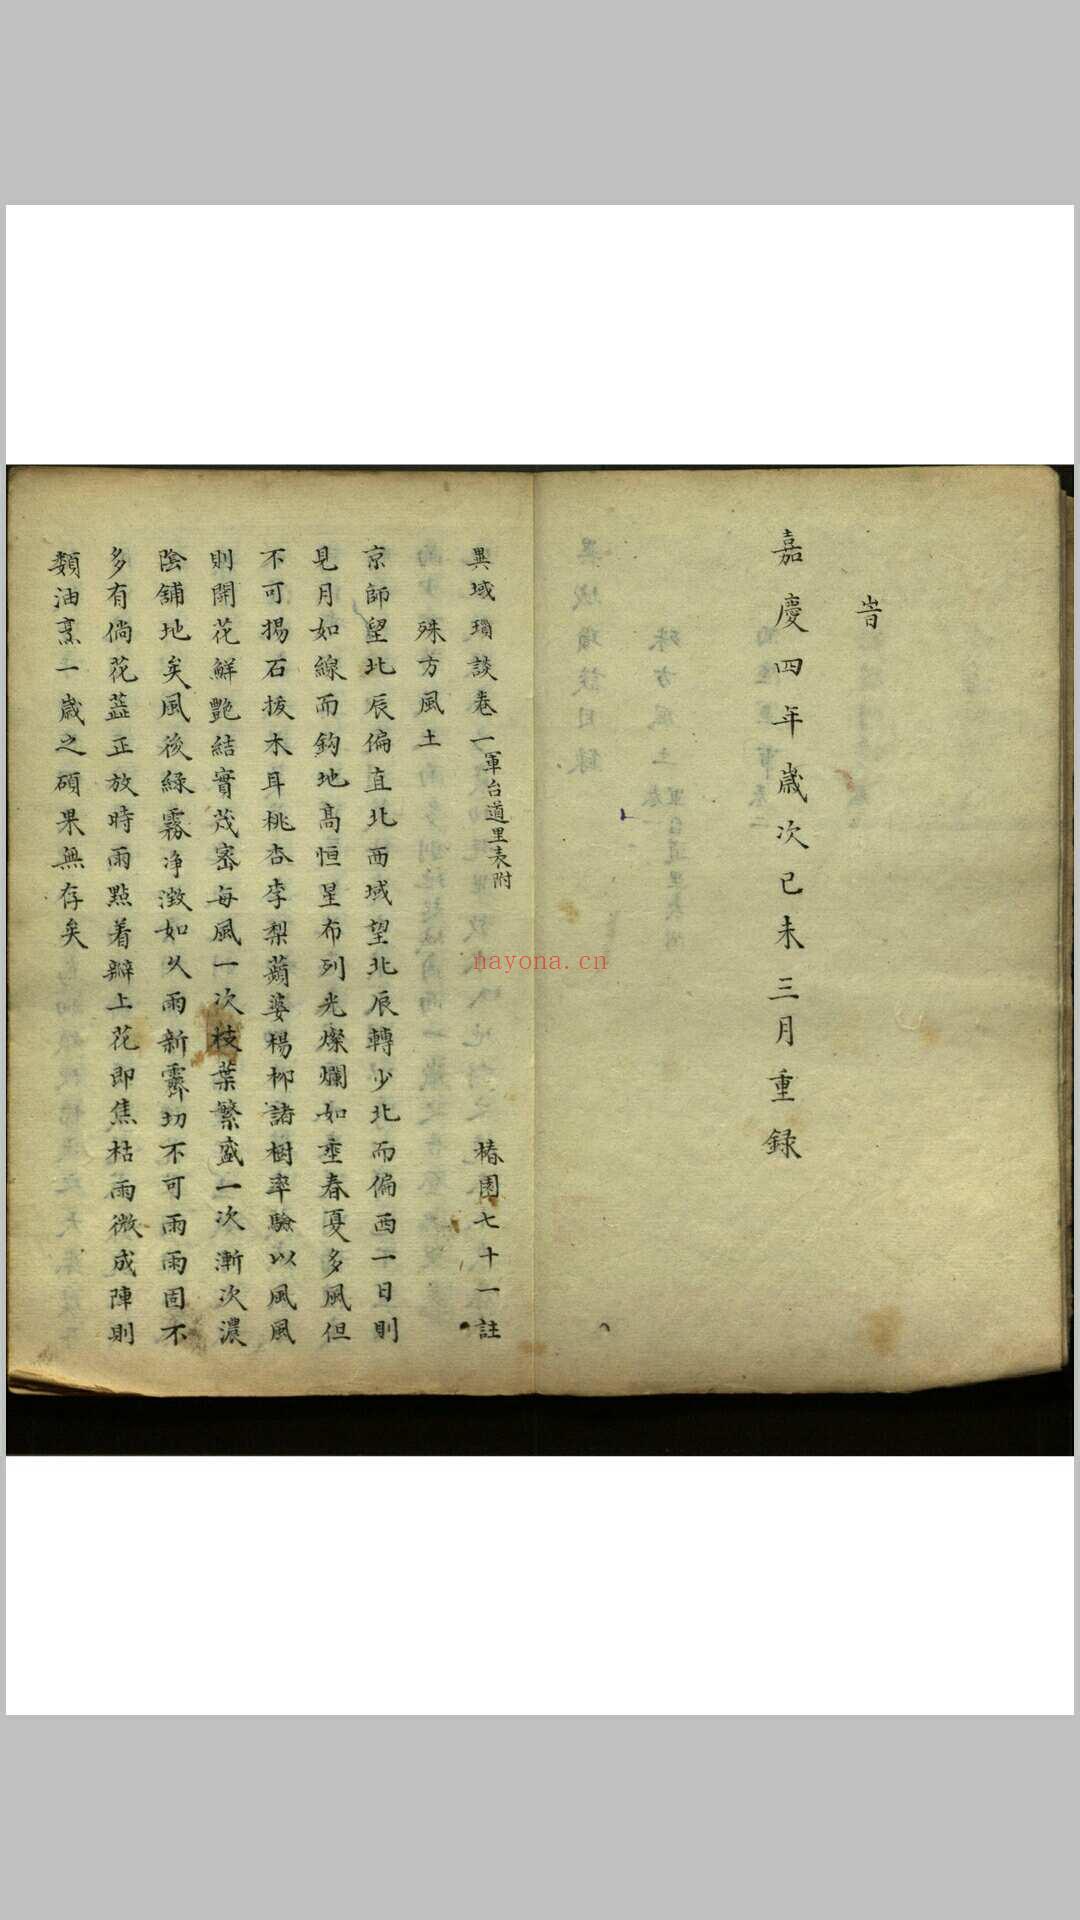 旹
嘉慶四年歲次己未三月重録
異域瑣談卷一軍台道里表附 椿園七十一註
殊方風土
京師望北辰偏直北西域望北辰轉少北而偏西一日則
見月如線而鈎地高恒星布列光燦爛如垂春夏多風但
不可揚石拔木耳桃杏李梨蘋婆楊柳諸樹率驗以風風
則開花鮮艷結實茂密每風一次枝葉繁盛一次漸次濃
陰舖地矣風後緑霧净澂如久雨新霽切不可雨雨固不
多有倘花蕋正放時雨點着瓣上花即焦枯雨微成陣則
類油烹一歲之碩果無存矣
nayona.cn